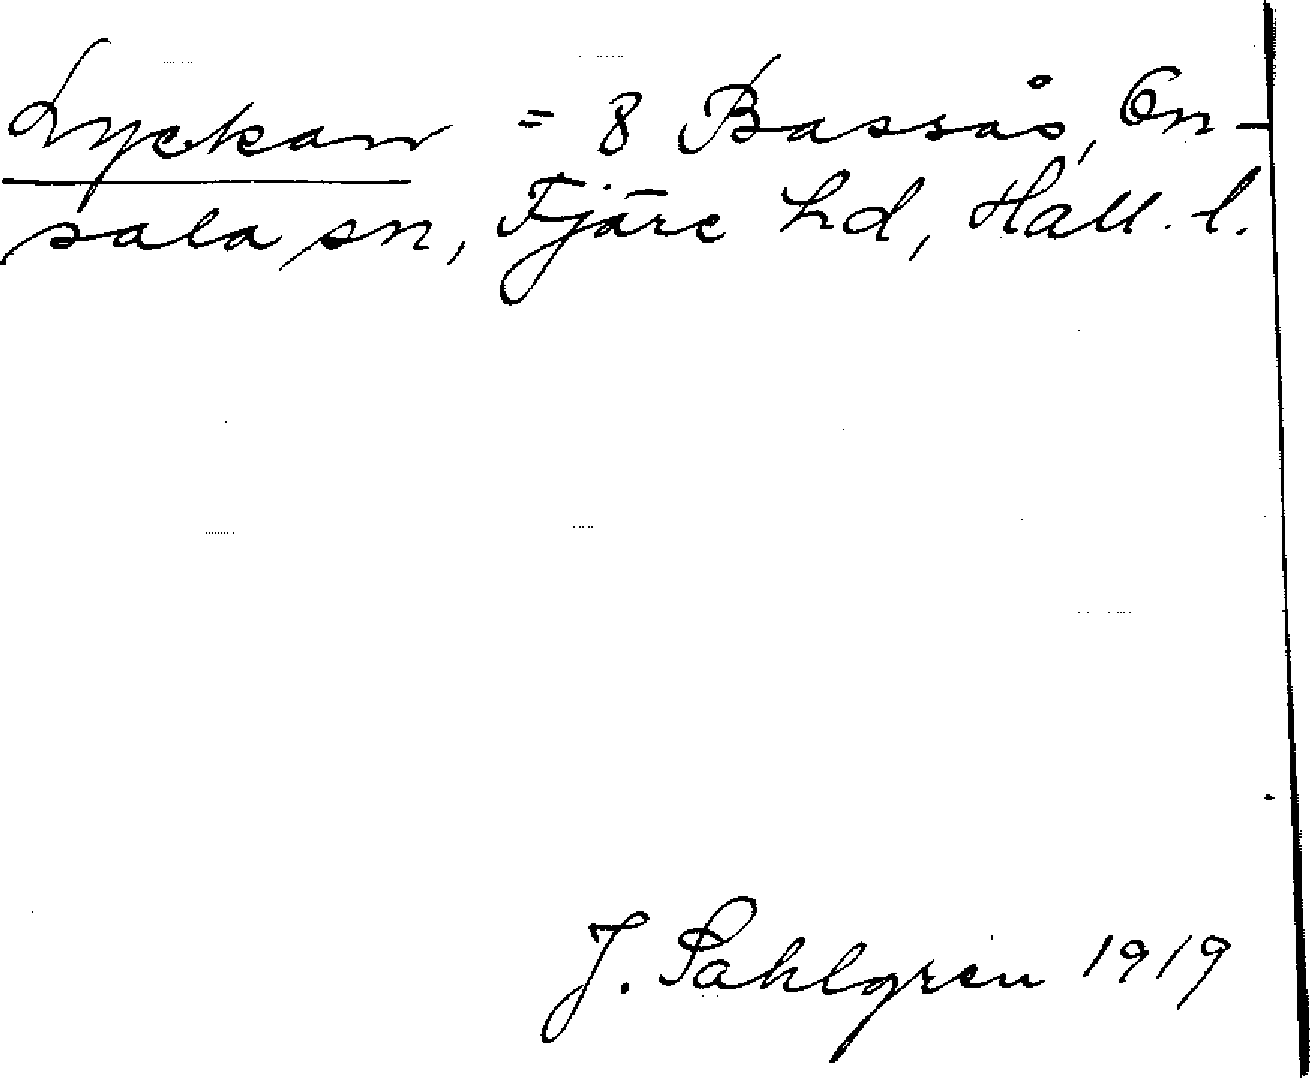 Lyckan = 8 Bassås, On-
sala sn, Fjäre hd, Hall. l.
J. Sahlgren 1919